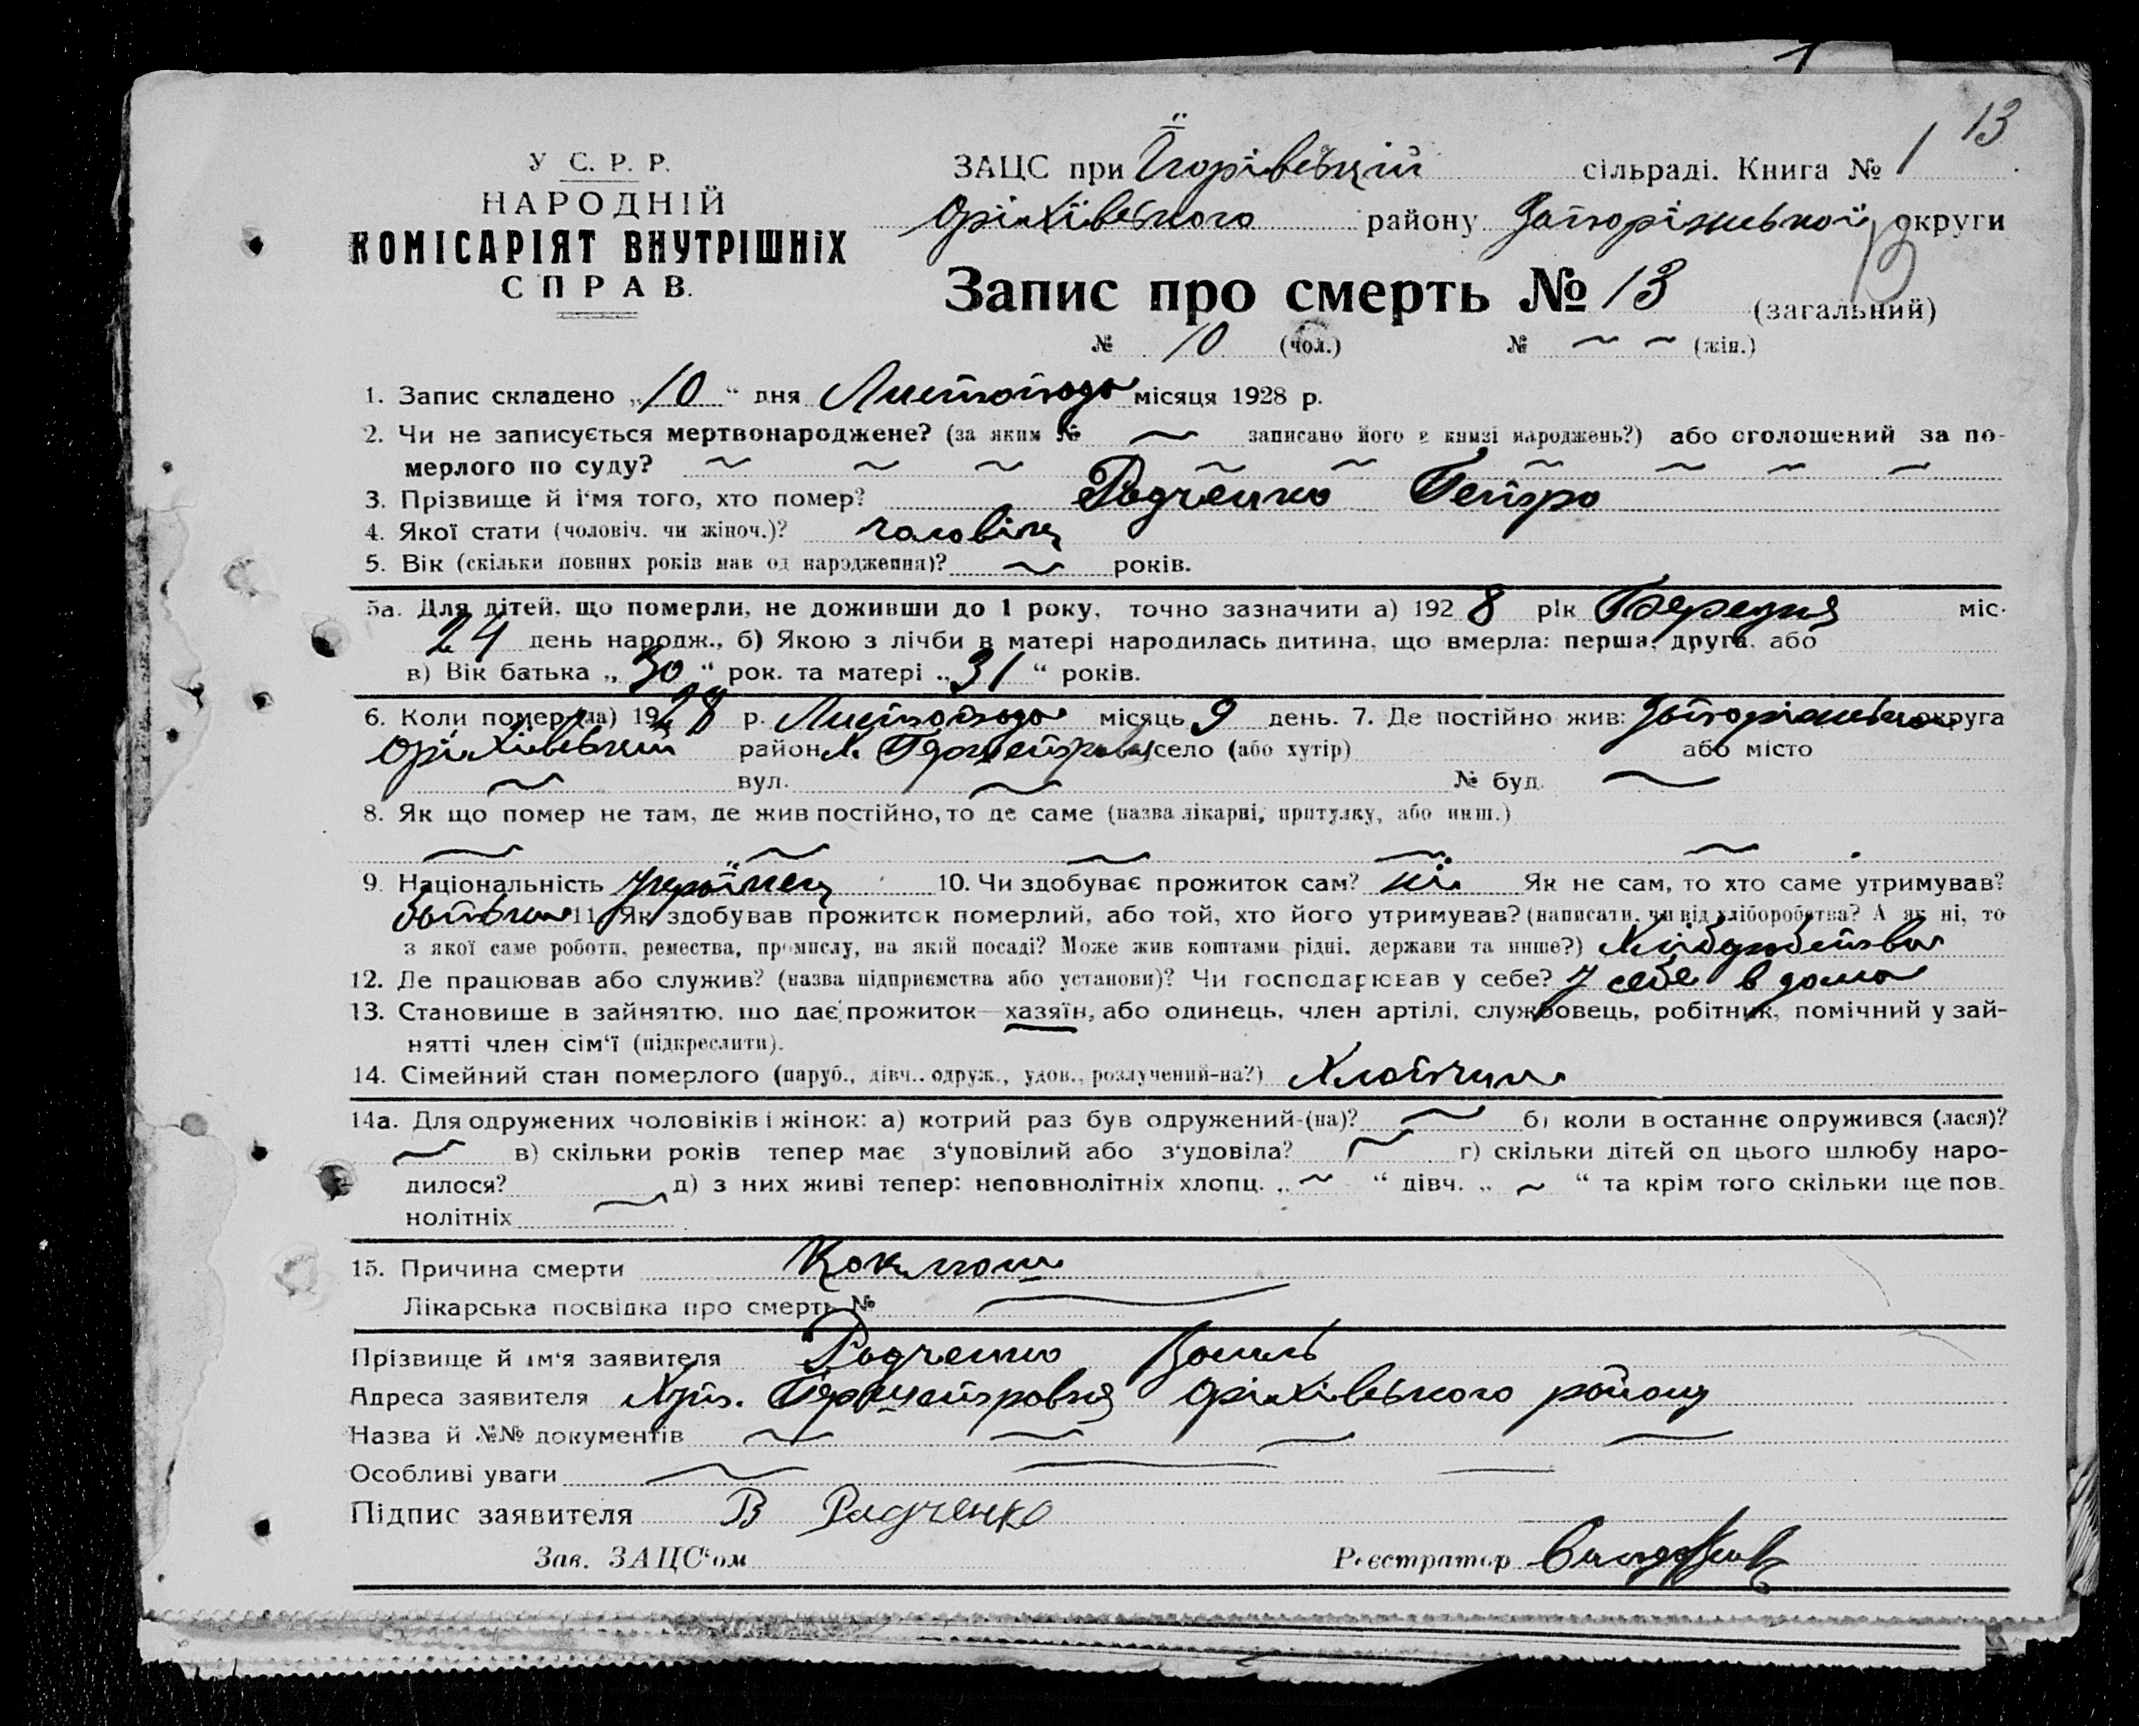 1
13
У С. Р. Р.
НАРОДНІЙ
КОМІСАРІЯТ ВНУТРІШНІХ
СПРАВ.
ЗАЦС при сільраді. Книга № 1
Оріхівського району Запоріжської округи
13
Запис про смерть № 13 (загальний)
№ 10 (чол.) № ~ ~ (жін.)
1. Запис складено „10“ дня Листопада місяця 1928 р.
2. Чи не записується мертвонароджене? (за яким № ~ записано його в книзі народжень?) або оголошений за по-
мерлого по суду? ~ ~ ~ ~ ~ ~ ~ ~ ~
3. Прізвище й і‘мя того, хто помер? Радченко Петро
4. Якої стати (чоловіч. чи жіноч.)? чоловіч
5. Вік (скільки повних років мав од народження)? ~ років.
5а. Для дітей, що померли, не доживши до 1 року, точно зазначити а) 1928 рік Березня міс.
24 день народж., б) Якою з лічби в матері народилась дитина, що вмерла: перша, друга, або
в) Вік батька „30“ рок. та матері „31“ років.
6. Коли помер (ла) 1928 р. Листопада місяць 9 день. 7. Де постійно жив: Запоріжська округа
Оріхівський район х. село (або хутір) або місто
~ вул. ~ № буд. ~
8. Як що помер не там, де жив постійно, то де саме (назва лікарні, притулку, або инш.)
~ ~ ~ ~ ~
9. Національність Українец 10. Чи здобуває прожиток сам? ні Як не сам, то хто саме утримував?
батько 11. Як здобував прожиток померлий, або той, хто його утримував? (написати, чи від хліборобства? А як ні, то
з якої саме роботи, ремества, промислу, на якій посаді? Може жив коштами рідні, держави та инше?) Хліборобство
12. Де працював або служив? (назва підприємства або установи)? Чи господарював у себе? У себе в дома
13. Становище в зайнятю, що дає прожиток—хазяїн, або одинець, член артілі, службовець, робітник, помічний у зай-
нятті член сім‘ї (підкреслити).
14. Сімейний стан померлого (паруб., дівч., одруж., удов., розлучений-на?) Хлопчик
14а. Для одружених чоловіків і жінок: а) котрий раз був одружений-(на)? ~ б) коли в останнє одружився (лася)?
~ в) скільки років тепер має з‘уповілий або з‘удовіла? ~ г) скільки дітей од цього шлюбу наро-
дилося? ~ д) з них живі тепер: неповнолітніх хлопц. „ ~ “ дівч. „ ~ “ та крім того скільки ще пов-
нолітніх
15. Причина смерти Коклюш
Лікарська посвідка про смерть №
Прізвище й ім‘я заявителя Радченко Василь
Адреса заявителя Хут. Оріхівського району
Назва й №№ документів ~ ~ ~ ~
Особливі уваги
Підпис заявителя В Радченко
Зав. ЗАЦС‘ом Реєстратор